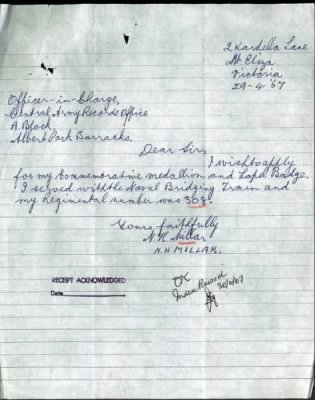 2 Kardella Lane
Mt. Eliza
Victoria
29-4-'67
Officer-in-Charge,
Central Army Records Office
A. Block,
Albert Park Barracks.
Dear Sir,
I wish to apply
for my Commemorative medallion and Lapel Badge.
I served with the Naval Bridging Train and
my Regimental number was 308.
Yours faithfully
N. H. Millar
N. H MILLAR.
RECEIPT ACKNOWLEDGED
Date
OK
Index Record
30/6/67